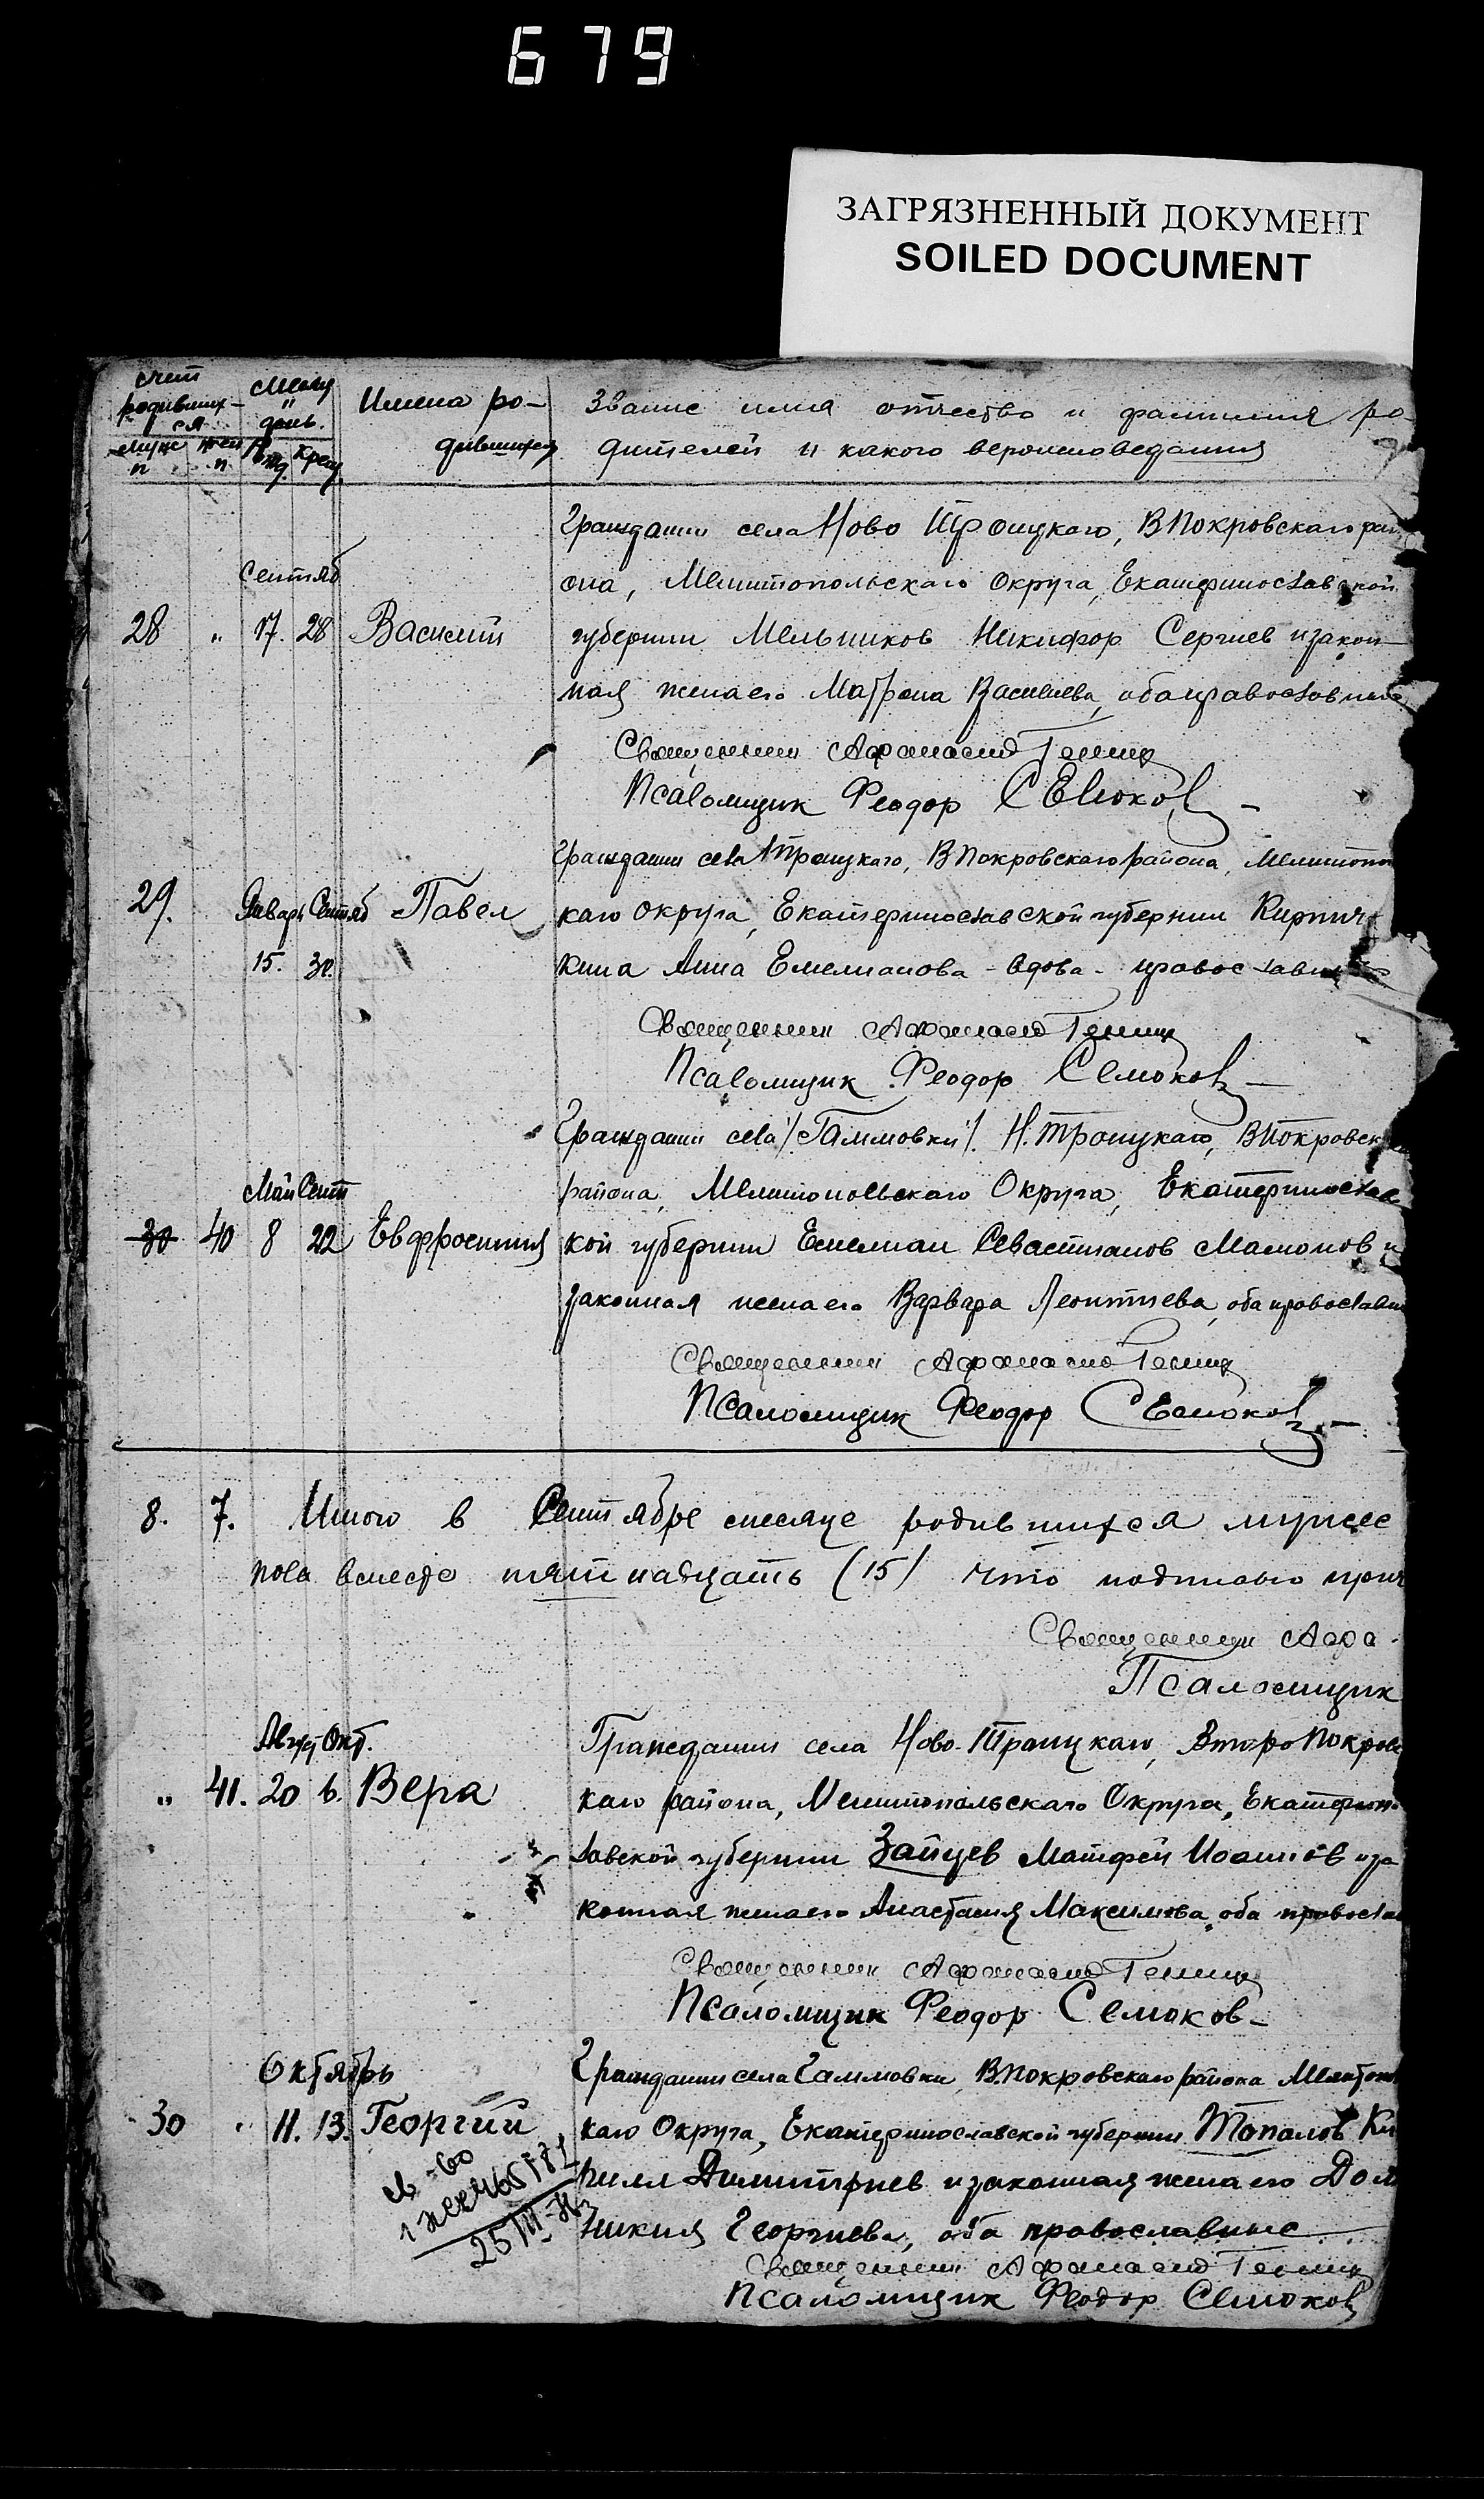 679
ЗАГРЯЗНЕННЫЙ ДОКУМЕНТ
SOILED DOCUMENT
счет родивших-ся
муж п
жен п
Месяц и день.
Рожд. Крещ.
Имена ро-
дившихся
Звание имя отчество и фамилия ро
дителей и какого вероисповедания
Гражданин села Ново Троицкаго, В Покровскаго рай
Сентяб
она, Мелитопольскаго Округа, Екатеринославской
28 " 17. 28 Василий губернии Мельников Никифор Сергиев и закон-
ная жена его Матрона Васильева, оба православные
Священник Афанасий
Псаломщик Феодор Семоков
Граждании села НТроицкаго, В Покровскаго района, Мелитопо
29. Январь Сентяб Павел
каго округа, Екатеринославской губернии Кирпич
15. 30.
кина Анна Емелианова - вдова - православн
Священник Афанасий
Псаломщик Феодор Семоков
Гражданин села /Гаммовки/. Н. Троицкаго, В Покровск
Май Сент
района, Мелитопольскаго Округа, Екатеринослав
30 40 8 22 Евфросиния кой губернии Емелиан Севастианов Мамонов и
законная жена его Варвара Леонтиева, оба православн
Священник Афанасий
Псаломщик Феодор Семоков
8. 7. Итого в Сентябре месяце родившихся мужес
пола вместе пятнадцать (15) что подписью
Священник Афа
Псаломщик
Август Окт.
Гражданин села Ново-Троицкаго, Второ Покровс
" 41. 20 6. Вера
каго района, Мелитопольскаго Округа, Екатерино
славской губернии Зайцев Матфей Иоаннов и за
конная жена его Анастасия Максимова, оба православ
Священник Афанасий
Псаломщик Феодор Семоков
Октябрь
Гражданин села Гаммовки, В. Покровскаго района Мелитопо
30 " 11. 13. Георгий
каго Округа, Екатеринославской губернии Топалов Ки
рилл Димитриев и законная жена его Дом
никия Георгиева, оба православные
св-во
25 III
Священник Афанасий
Псаломщик Феодор Семоков